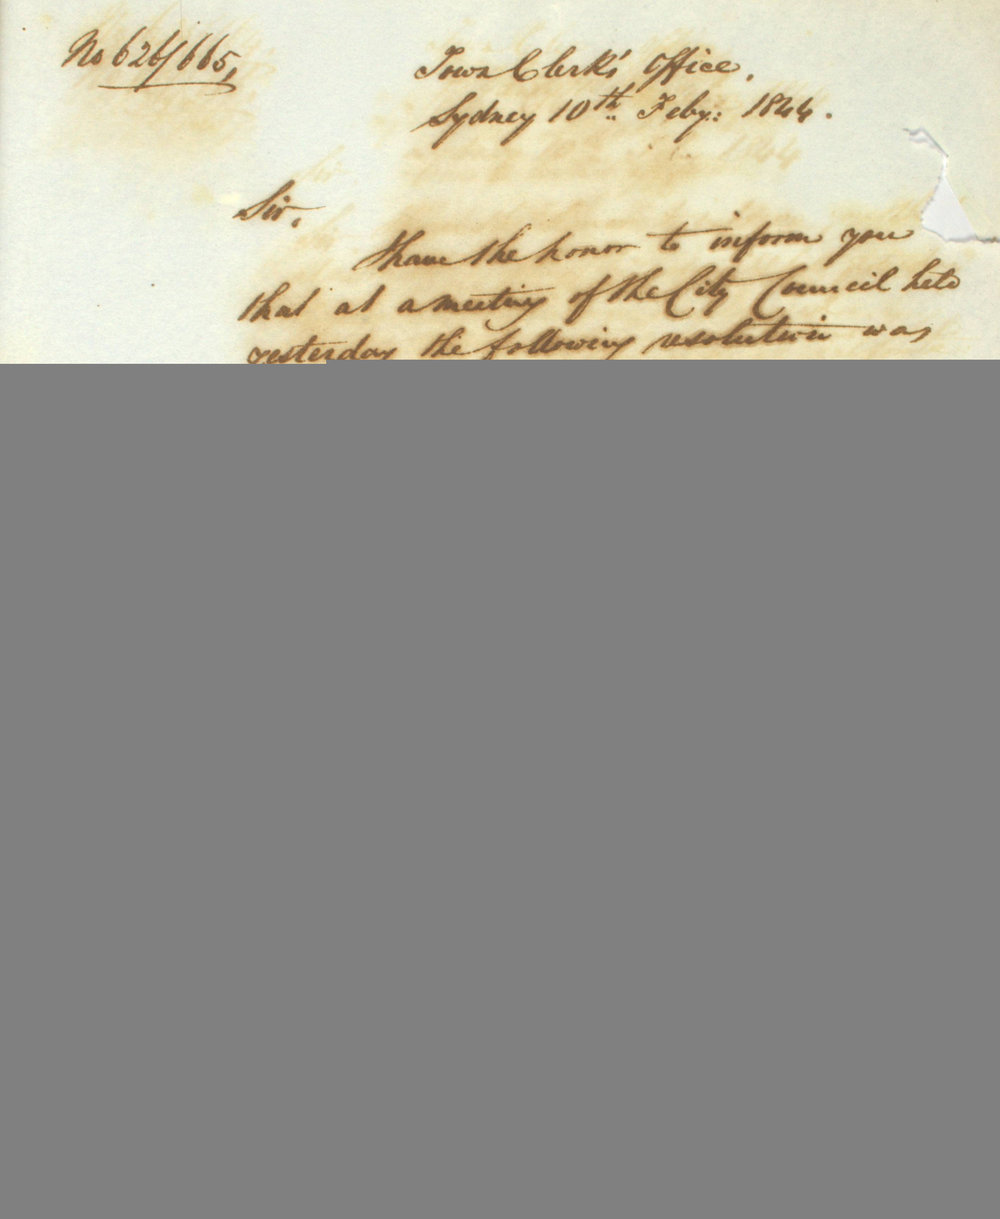 No 626/665,
Town Clerk's Office,
Sydney 10th Feby: 1844.
Sir,
I have the honor to inform you
that at a meeting of the City Council held
yesterday the following resolution was